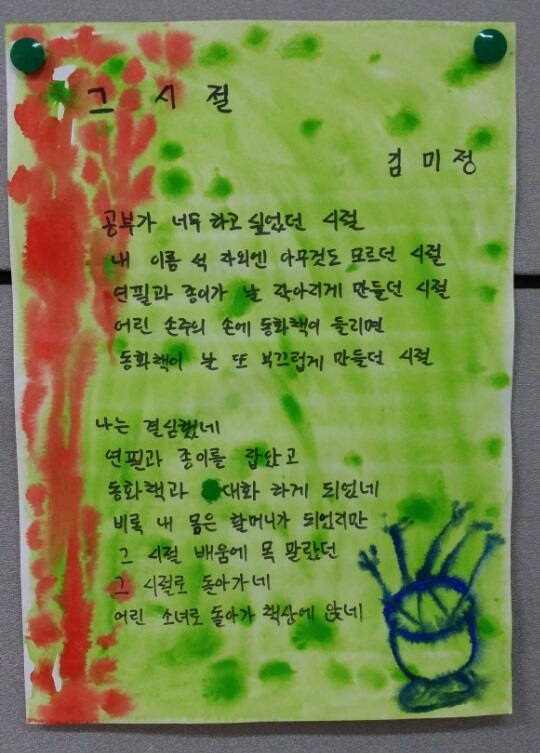 그 시절
김미정
공부가 너무 하고 싶었던 시절
내 이름 석 자외엔 아무것도 모르던 시절
연필과 종이가 날 작아지게 만들던 시절
어린 손주의 손에 동화책이 들리면
동화책이 날 또 부끄럽게 만들던 시절
나는 결심했네
연필과 종이를 잡았고
동화책과 대화 하게 되었네
비록 내 몸은 할머니가 되었지만
그 시절 배움에 목 말랐던
그 시절로 돌아가네
어린 소녀로 돌아가 책상에 앉네